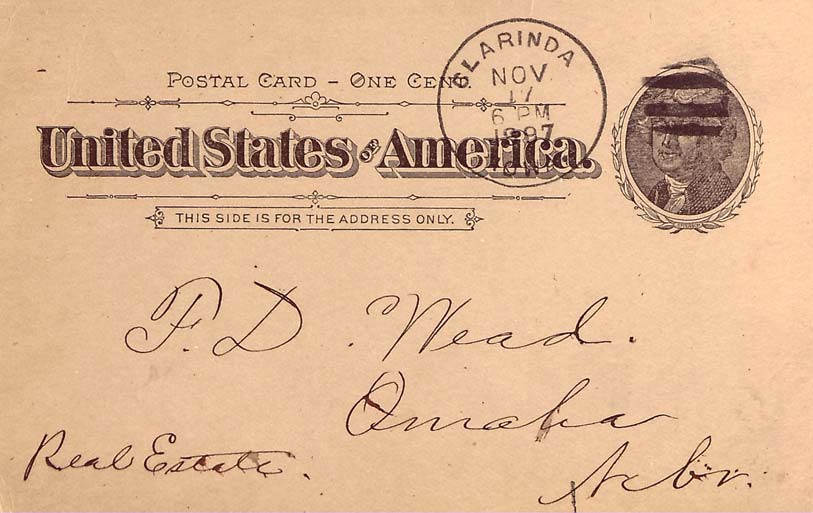 POSTAL CARD – ONE CENT.
CLARINDA
NOV
17
6 PM
1897
IOWA
United States of America.
THIS SIDE IS FOR THE ADDRESS ONLY.
F. D. Wead.
Omaha
Real Estate.
Nebr.